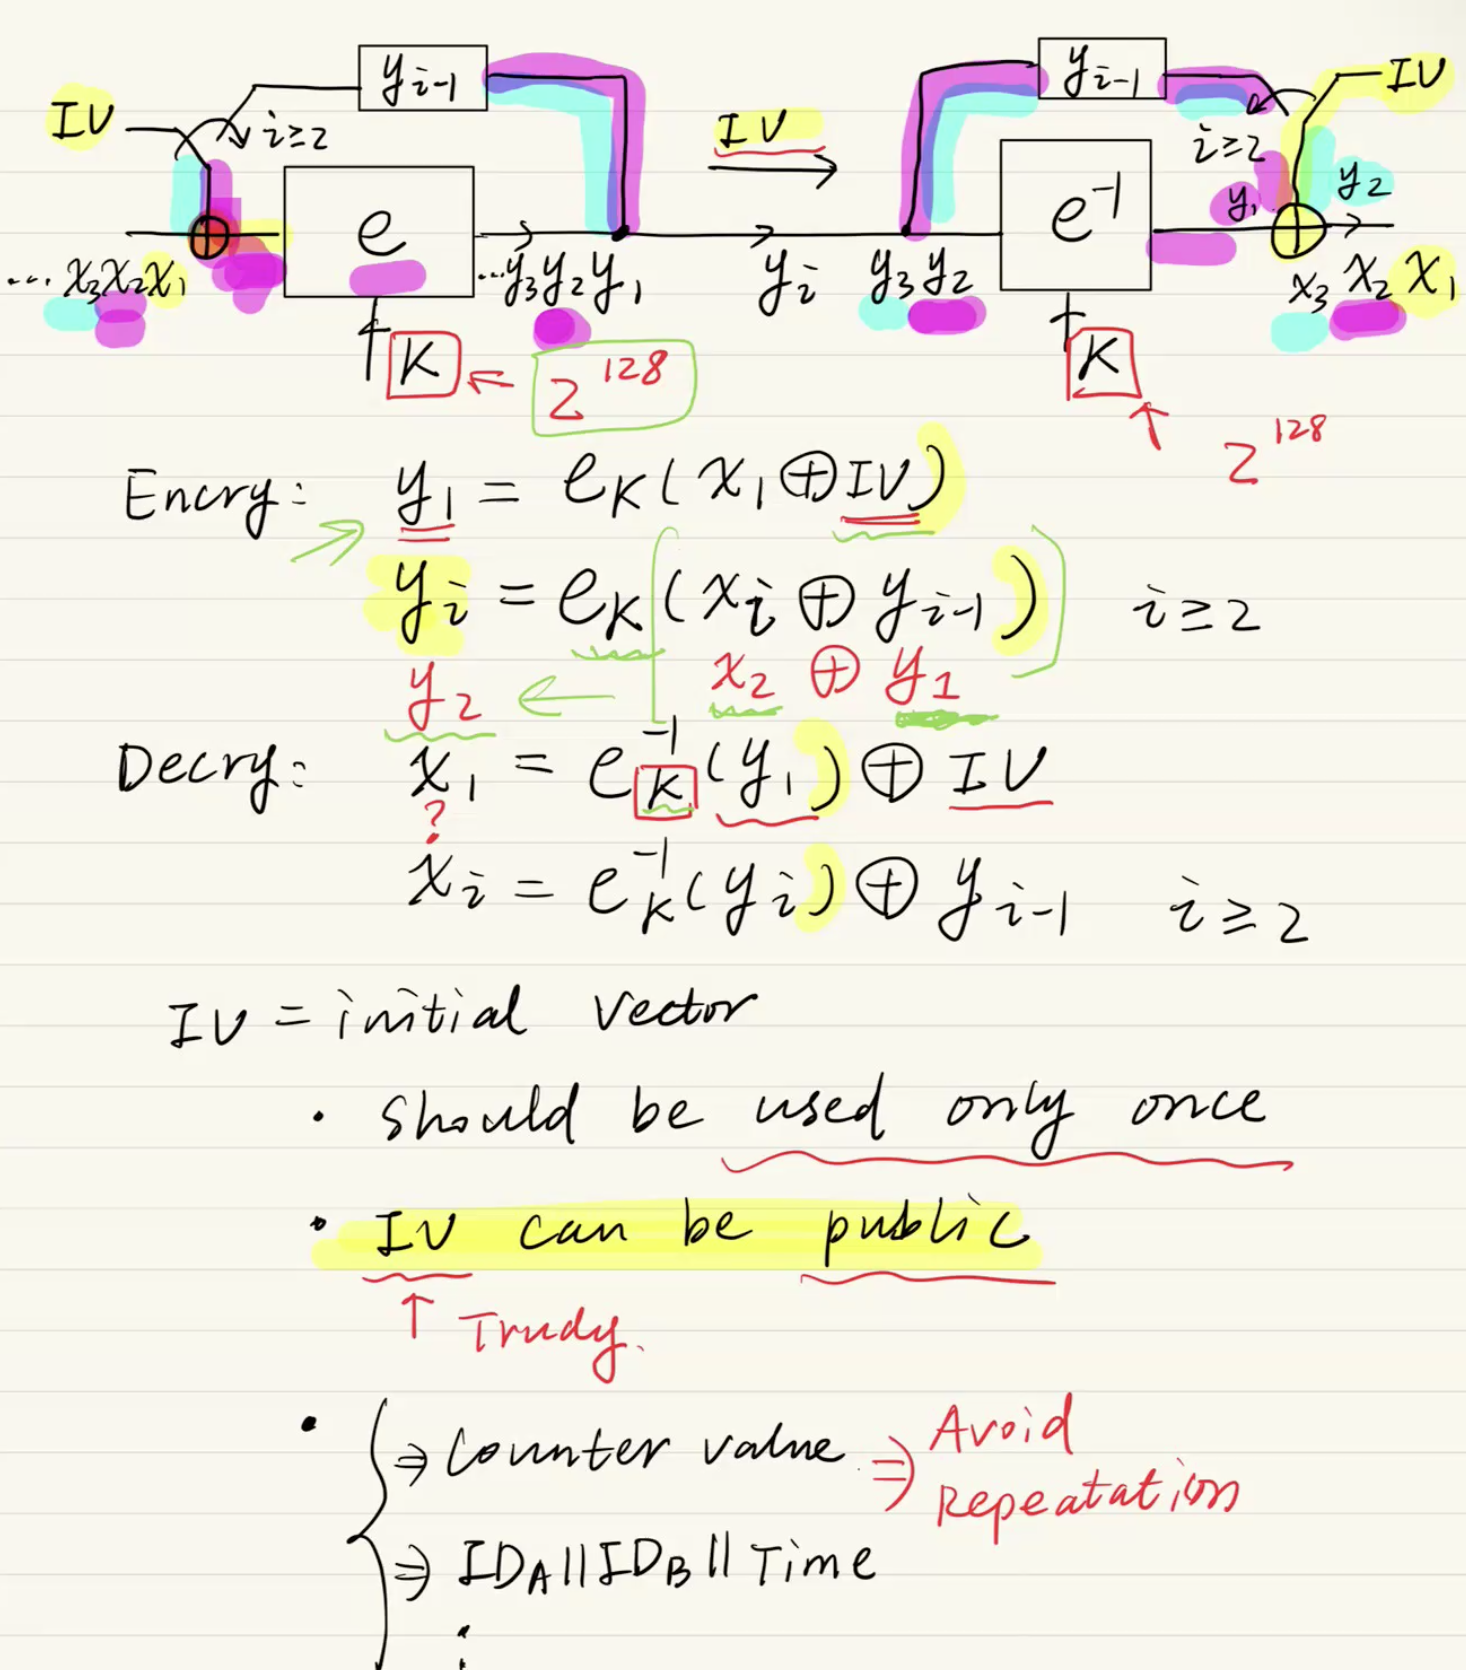 y_{i-1} y_{i-1} IV
IV i≥2 IV i≥2
e e^{-1} y_1 y_2
... x_3 x_2 x_1 ... y_3 y_2 y_1 y_i y_3 y_2 x_3 x_2 x_1
K 2^{128} K
2^{128}
Encry: y_1 = e_K(x_1 ⊕ IV)
y_i = e_K(x_i ⊕ y_{i-1}) i≥2
y_2 x_2 ⊕ y_1
Decry: x_1 = e_K^{-1}(y_1) ⊕ IV
?
x_i = e_K^{-1}(y_i) ⊕ y_{i-1} i≥2
IV = initial vector
· should be used only once
· IV can be public
↑ Trudy.
· ⇒ Counter value ⇒ Avoid
Repeatation
⇒ ID_A||ID_B||Time